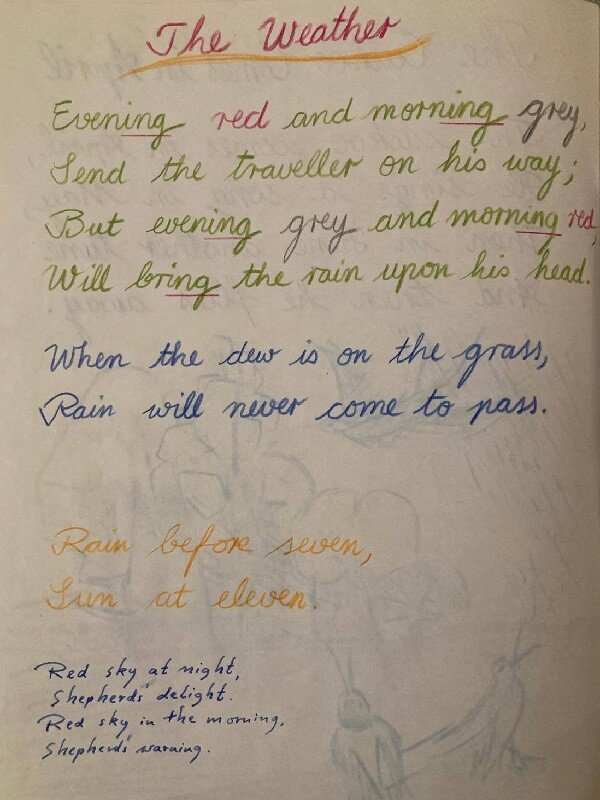 The Weather
Evening red and morning grey,
Send the traveller on his way;
But evening grey and morning red,
Will bring the rain upon his head.
When the dew is on the grass,
Rain will never come to pass.
Rain before seven,
Sun at eleven.
Red sky at night,
Shepherds' delight.
Red sky in the morning,
Shepherds' warning.